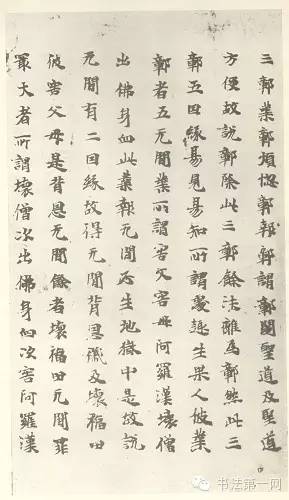 三鄣業鄣煩惱鄣報鄣謂鄣閡聖道及聖道
方便故說鄣除此三鄣餘法雖為鄣然此三
鄣五因緣易見易知所謂生果人彼業
鄣者五无間業所謂害父害母阿羅漢壞僧
出佛身血此業報无間必生地獄中是故說
无間有二因緣故得无間背恩及壞福田
彼害父母是背恩无間餘者壞福田无間罪
冣大者所謂壞僧次出佛身血次害阿羅漢
书法第一网